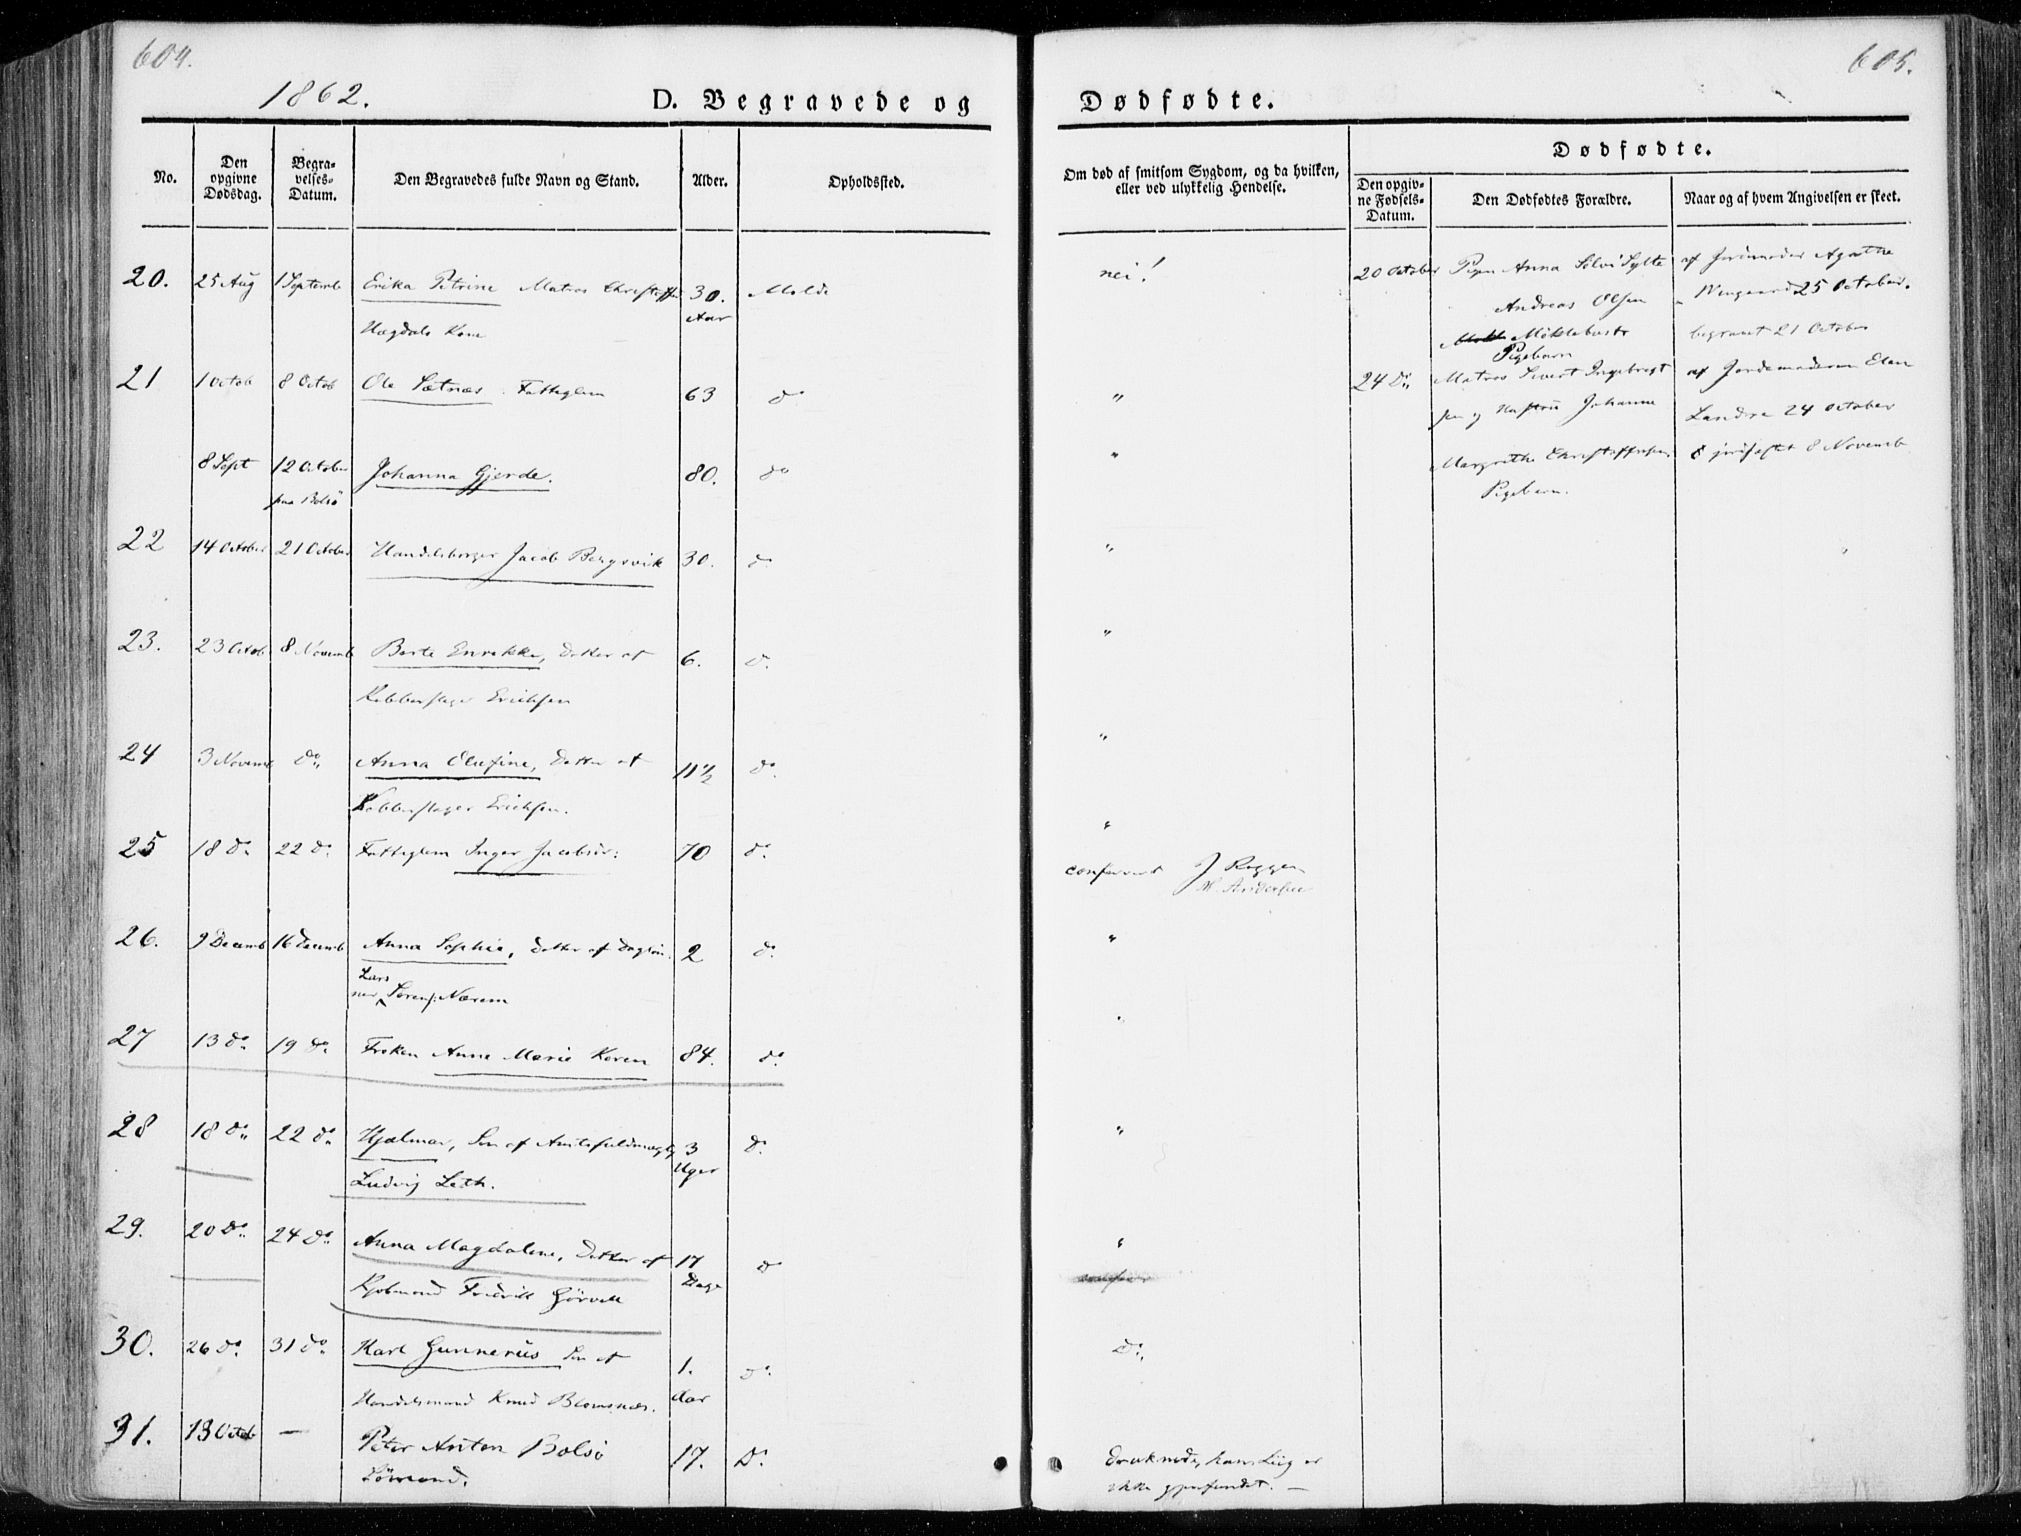 604.
1862.
D. Begravede og
No.
Den opgivne Dødsdag.
Begravelses-Datum.
Den Begravedes fulde Navn og Stand.
Alder.
Opholdssted.
20. 25 Aug 1 Septemb Erika Petrine Matros 30. Molde
Aar
Hagdals Kone
21 1 Octob 8 Octob Ole Sætnæs. Fattiglem 63 do
8 Sept 12 October Johanna Gjerde. 80. do
paa Bolsö
22 14 October 21 October Handelsborger Jacob Bergsvik 30. do
23. 23 Octob 8 Novemb Berte Enrekke, Datter af 6. do
Kobberslager Erichsen
24 3 Novemb do Anna Olufine, Datter af 11 1/2 do
Kobberslager Erichsen.
25 18 do 22 do Fattiglem Inger 70 do
26. 9 Decemb 16 Decemb Anna Sophie, Datter af 2 do
Lars
Sörens: Nærem
27 13 do 19 do Frøken Anne Marie Koren 84. do
28 18 do 22 do Hjalmar, Søn af Amtsfuldmægtig 3 do
Uger
Ludvig Leth.
29. 20 do 24 do Anna Magdalene, Datter af 17 do
Dage
Kjøbmand Fredrik Görvell
30. 26 do 31 do Karl Gunnerius Søn af 1. do
Handelsmand Knud Blomsnæs. Aar
31. 13 Octob — Peter Anton Bolsö 17. Do
Sömand.
605.
Dødfødte.
Om død af smitsom Sygdom, og da hvilken, eller ved ulykkelig Hendelse.
Dødfødte.
Den opgivne Fødsels-Datum.
Den Dødfødtes Forældre.
Naar og af hvem Angivelsen er skeet.
nei!
20 October Pigen Anna Sylte af Agathe
Andreas Olsen 25 October.
Möklebust begravet 21 October
Pigebarn
24 do Matros Sivert Ingebrigt af Jordemoderen Elen
sen og Hustru Johanne 24 October
Margrethe Christoffersen 8 Novemb
Pigebarn.
confereret J Roggen
M. Andersen
Do
druknede, hans Liig er
ikke gjenfundet. —